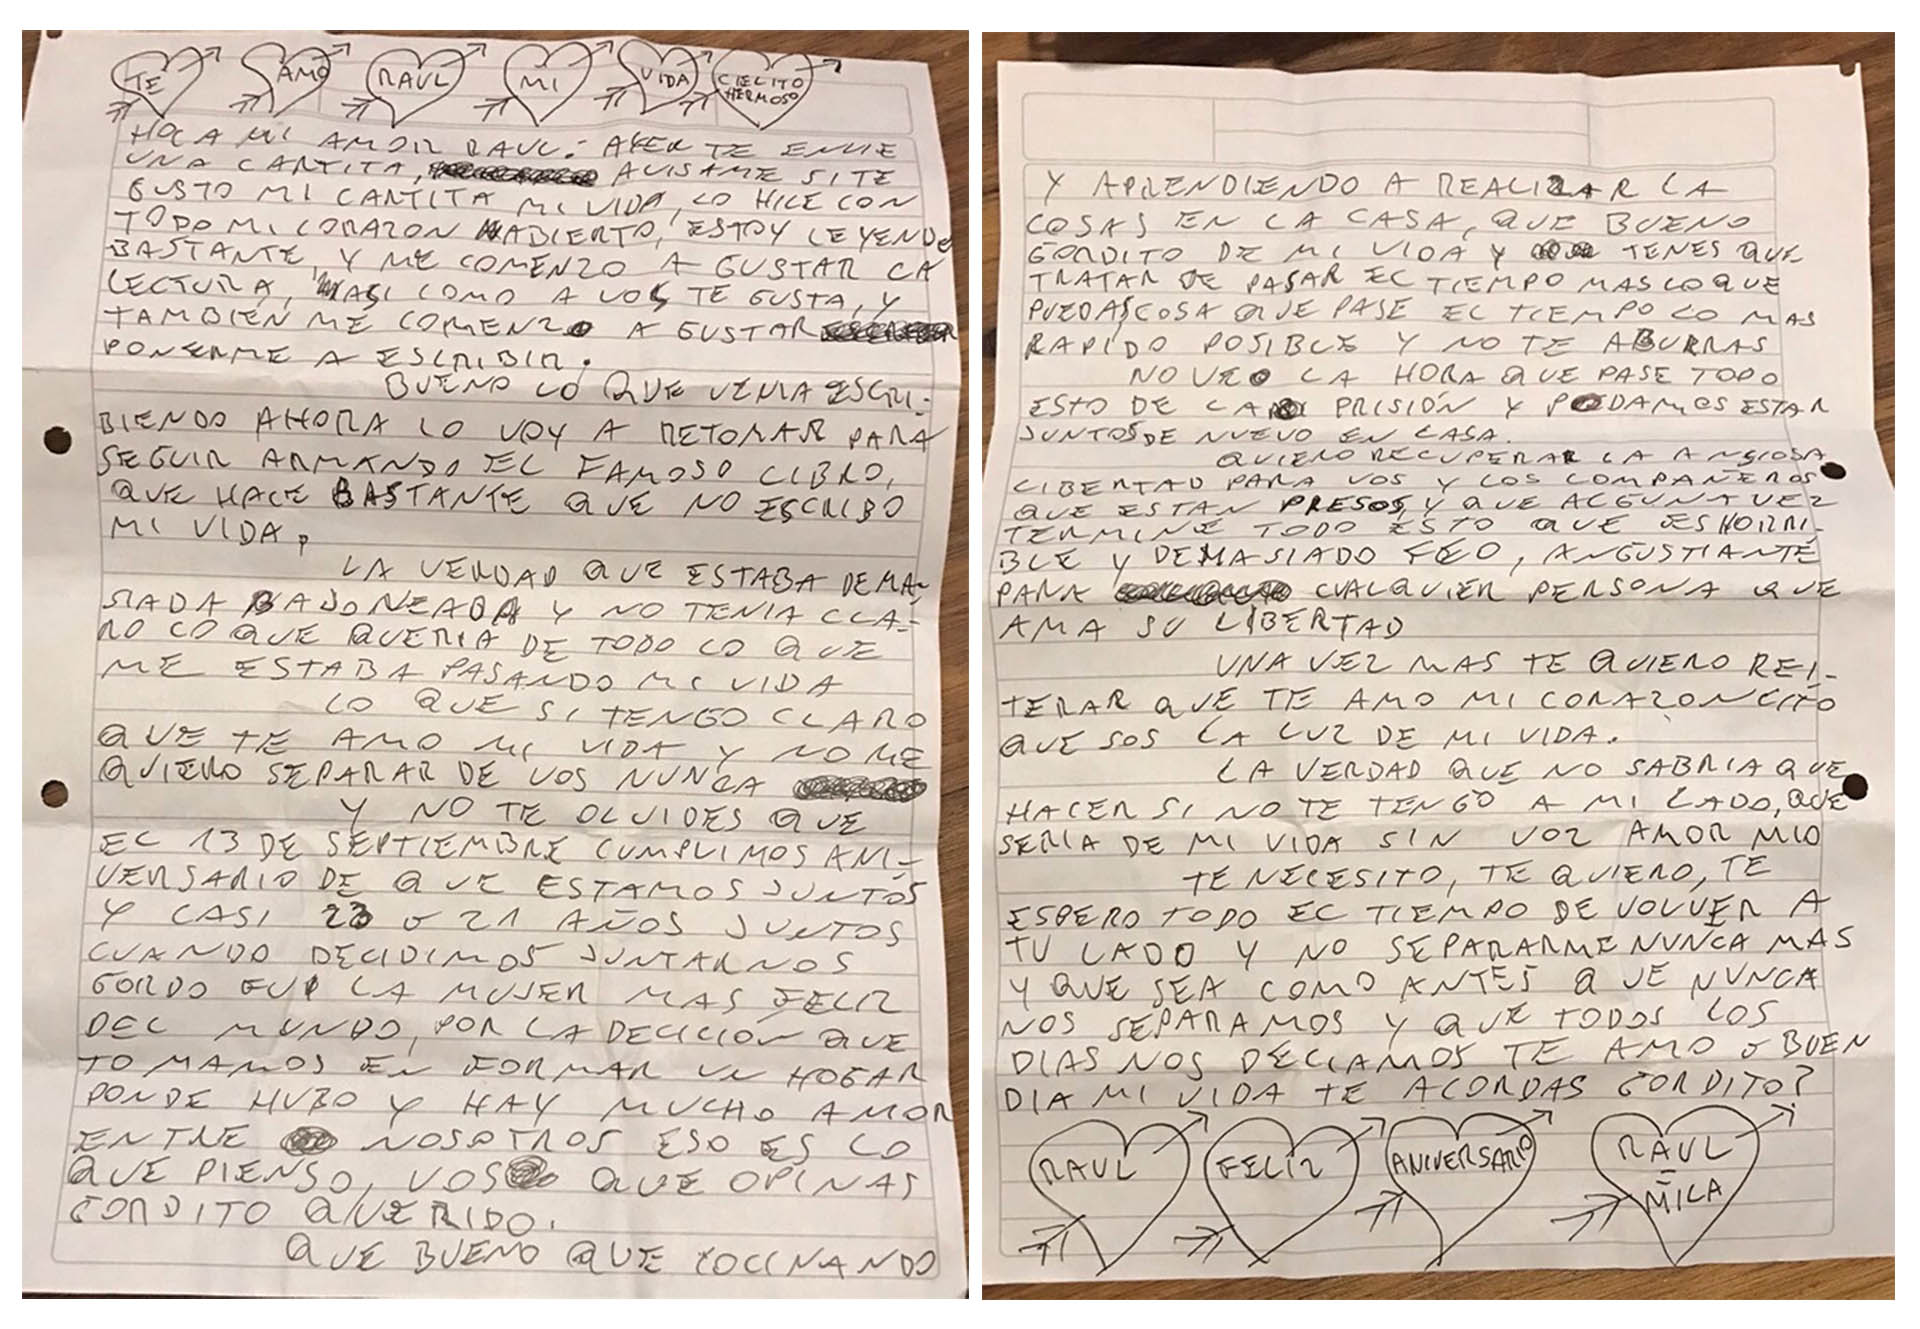 TE AMO RAUL MI VIDA CIELITO HERMOSO
HOLA MI AMOR RAUL: AYER TE ENVIE
UNA CARTITA, AVISAME SI TE
GUSTO MI CARTITA MI VIDA, LO HICE CON
TODO MI CORAZON ABIERTO, ESTOY LEYENDO
BASTANTE, Y ME COMENZO A GUSTAR LA
LECTURA, ASI COMO A VOS TE GUSTA, Y
TAMBIEN ME COMENZO A GUSTAR
PONERME A ESCRIBIR.
BUENO LO QUE VENIA ESCRI-
BIENDO AHORA LO VOY A RETOMAR PARA
SEGUIR ARMANDO EL FAMOSO LIBRO,
QUE HACE BASTANTE QUE NO ESCRIBO
MI VIDA,
LA VERDAD QUE ESTABA DEMA-
SIADA BAJONEADA Y NO TENIA CLA-
RO LO QUE QUERIA DE TODO LO QUE
ME ESTABA PASANDO MI VIDA
LO QUE SI TENGO CLARO
QUE TE AMO MI VIDA Y NO ME
QUIERO SEPARAR DE VOS NUNCA
Y NO TE OLVIDES QUE
EL 13 DE SEPTIEMBRE CUMPLIMOS ANI-
VERSARIO DE QUE ESTAMOS JUNTOS
Y CASI 20 O 21 AÑOS JUNTOS
CUANDO DECIDIMOS JUNTARNOS
GORDO FUI LA MUJER MAS FELIZ
DEL MUNDO, POR LA DECICIÓN QUE
TOMAMOS EN FORMAR UN HOGAR
DONDE HUBO Y HAY MUCHO AMOR
ENTRE NOSOTROS ESO ES LO
QUE PIENSO, VOS QUE OPINAS
GORDITO QUERIDO.
QUE BUENO QUE COCINANDO
Y APRENDIENDO A REALIZAR LA
COSAS EN LA CASA, QUE BUENO
GORDITO DE MI VIDA Y TENES QUE
TRATAR DE PASAR EL TIEMPO MAS LO QUE
PUEDAS COSA QUE PASE EL TIEMPO LO MAS
RAPIDO POSIBLE Y NO TE ABURRAS
NO VEO LA HORA QUE PASE TODO
ESTO DE LA PRISIÓN Y PODAMOS ESTAR
JUNTOS DE NUEVO EN CASA.
QUIERO RECUPERAR LA ANSIOSA
LIBERTAD PARA VOS Y LOS COMPAÑEROS
QUE ESTAN PRESOS, Y QUE ALGUNA VEZ
TERMINE TODO ESTO QUE ES HORRI-
BLE Y DEMASIADO FEO, ANGUSTIANTE
PARA CUALQUIER PERSONA QUE
AMA SU LIBERTAD
UNA VEZ MAS TE QUIERO REI-
TERAR QUE TE AMO MI CORAZONCITO
QUE SOS LA LUZ DE MI VIDA.
LA VERDAD QUE NO SABRIA QUE
HACER SI NO TE TENGO A MI LADO, QUE
SERIA DE MI VIDA SIN VOZ AMOR MIO
TE NECESITO, TE QUIERO, TE
ESPERO TODO EL TIEMPO DE VOLVER A
TU LADO Y NO SEPARARME NUNCA MAS
Y QUE SEA COMO ANTES QUE NUNCA
NOS SEPARAMOS Y QUE TODOS LOS
DIAS NOS DECIAMOS TE AMO O BUEN
DIA MI VIDA TE ACORDAS GORDITO?
RAUL FELIZ ANIVERSARIO RAUL
- MILA